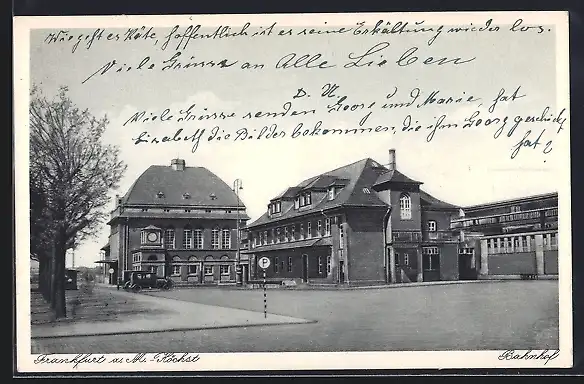 Wie geht es Käte, hoffentlich ist er seine Erkältung wieder los.
Viele Grüsse an Alle Lieben
D. U.
Viele Grüsse senden Georg und Marie, hat
Elisabeth die Bilder bekommen, die ihm Georg geschickt
hat?
P
Frankfurt a. M.-Höchst
Bahnhof